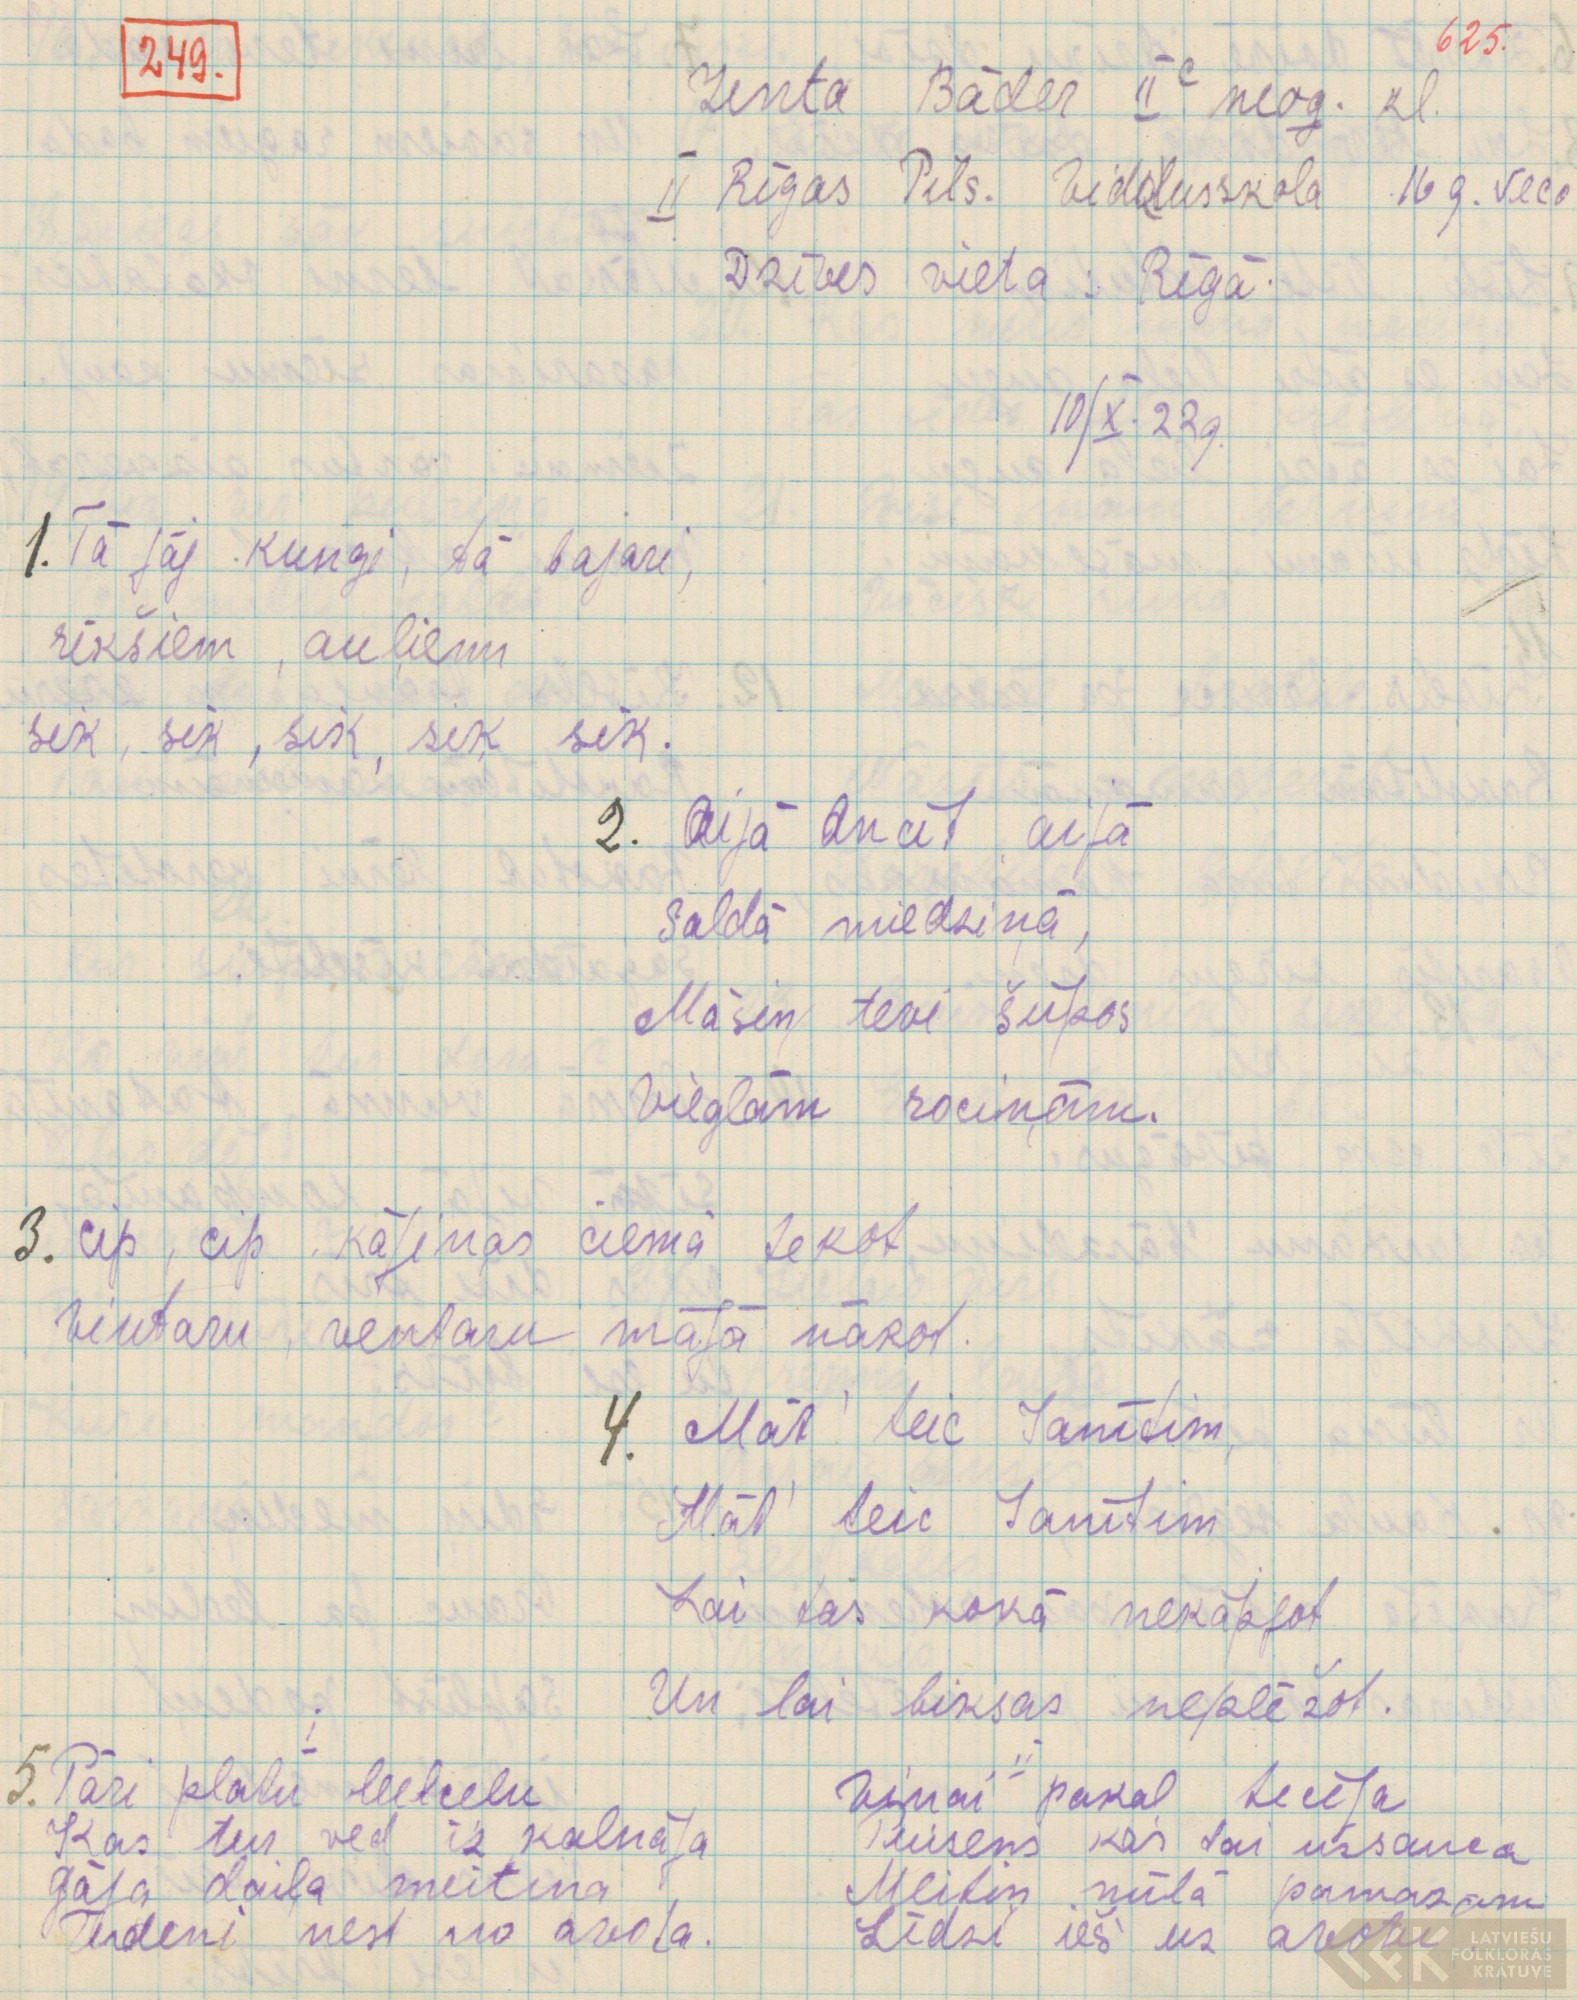 249.
625.
Zenta Bāder II c neog. kl.
II Rīgas Pils. Vidusskola 16 g. veca
Dzīves vieta : Rīgā.
10/X. 22g.
1. Tā jāj kungi, tā bajari,
rikšiem, auļiem
sik, sik, sik, sik sik.
2. Aijā Ancīt aijā
Saldā miedziņā,
Māsiņ tevi šūpos
Vieglām rociņām.
3. cip, cip kājiņas ciemā tekot
Ventaru, ventaru mājā nākot.
4. Māt' teic Jānītim,
Māt' teic Jānītim
Lai tas kokā nekāpjot
Un lai biksas neplēžot.
5. I
Pāri platu lielceļu
Kas tur ved iz kalnāja
gāja daiļa meitiņa
Ūdeni nest no avota.
II
Viņai pakaļ tecēja
Puisens kas tai uzsauca
Meitiņ mīļā pamazām
Līdzi ieš uz avotu
LATVIEŠU
FOLKLORAS
KRĀTUVE